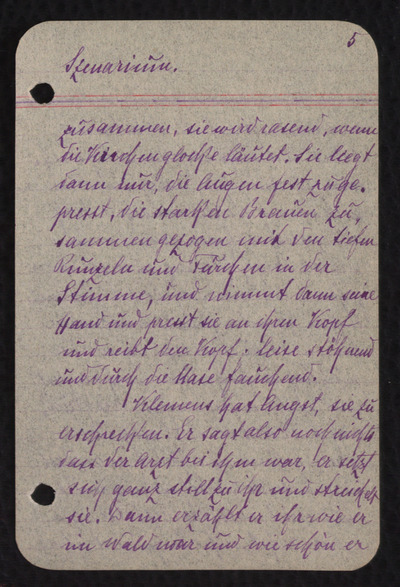 5
Szenarium.
zusammen, sie wird rasend, wenn
die Kirchenglocke läutet. Sie liegt
dann nur, die Augen fest zuge-
presst, die starken Brauen zu-
sammengezogen mit den tiefen
Runzeln und Furchen in der
Stimme, und nimmt dann seine
Hand und presst sie an ihren Kopf
und reibt den Kopf. leise stöhnend
und durch die Nase fauchend.
Klemens hat Angst, sie zu
erschrecken. Er sagt also noch nichts
dass der Arzt bei ihm war, er setzt
sich ganz still zu ihr und streichelt
sie. Dann erzählt er ihr wie er
im Wald war und wie schön er